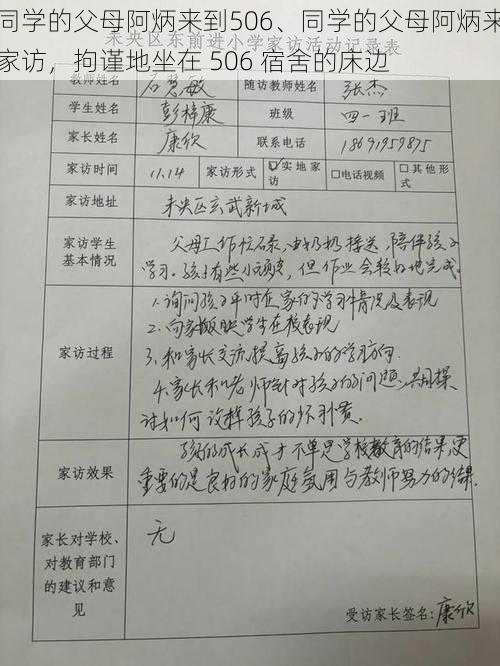 同学的父母阿炳来到506、同学的父母阿炳来
家访，拘谨地坐在 506 宿舍的床边
未央区东前进小学家访活动记录表
教师姓名 石碧敏 随访教师姓名 张杰
学生姓名 彭梓康 班级 四一班
家长姓名 康欣 联系电话 18691959875
家访时间 11.14 家访形式 ☑实地家访 □电话视频 □其他形式
家访地址 未央区玄武新城
家访学生基本情况
父母工作忙碌,由奶奶接送,陪伴孩子
学习。孩子有些小顽皮,但作业会较好地完成。
家访过程
1.询问孩子平时在家的学习情况及表现
2.向家长反映学生在校表现
3.和家长交流,提高孩子的学习方向.
4.家长和老师针对孩子的问题,共同探
讨如何改掉孩子的坏习惯。
家访效果
孩子的成长成才不单是学校教育的结果,更
重要的是良好的家庭氛围与教师努力的结果.
家长对学校、对教育部门的建议和意见
无
受访家长签名:康欣